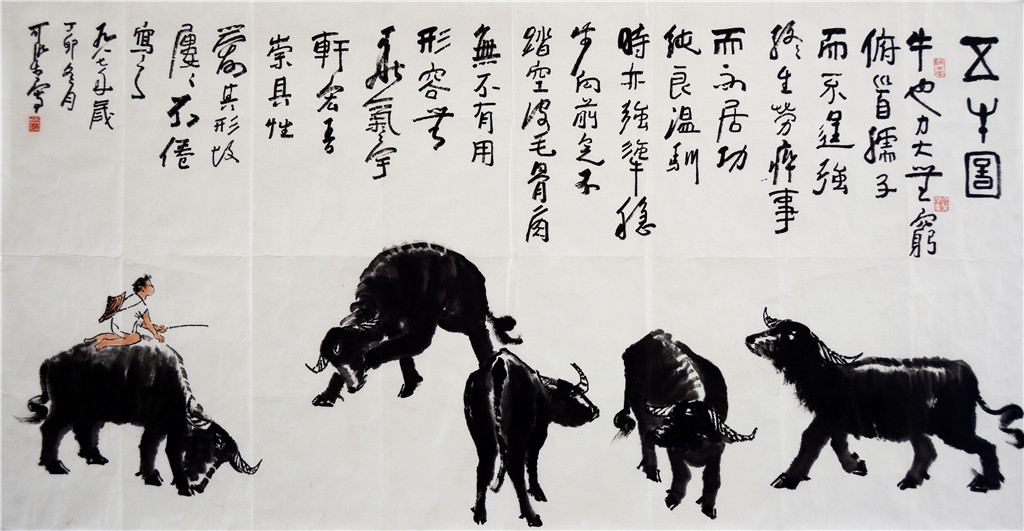 五牛圖
牛也力大無窮
俯首孺子
而不逞強
終生勞瘁事
而不居功
純良溫馴
時亦強犟穩
步向前足不
踏空皮毛骨角
無不有用
形容無
華氣宇
軒宏吾
崇其性
愛其形故
屢〻不倦
寫之
一九八七年歲
丁卯冬月
可染